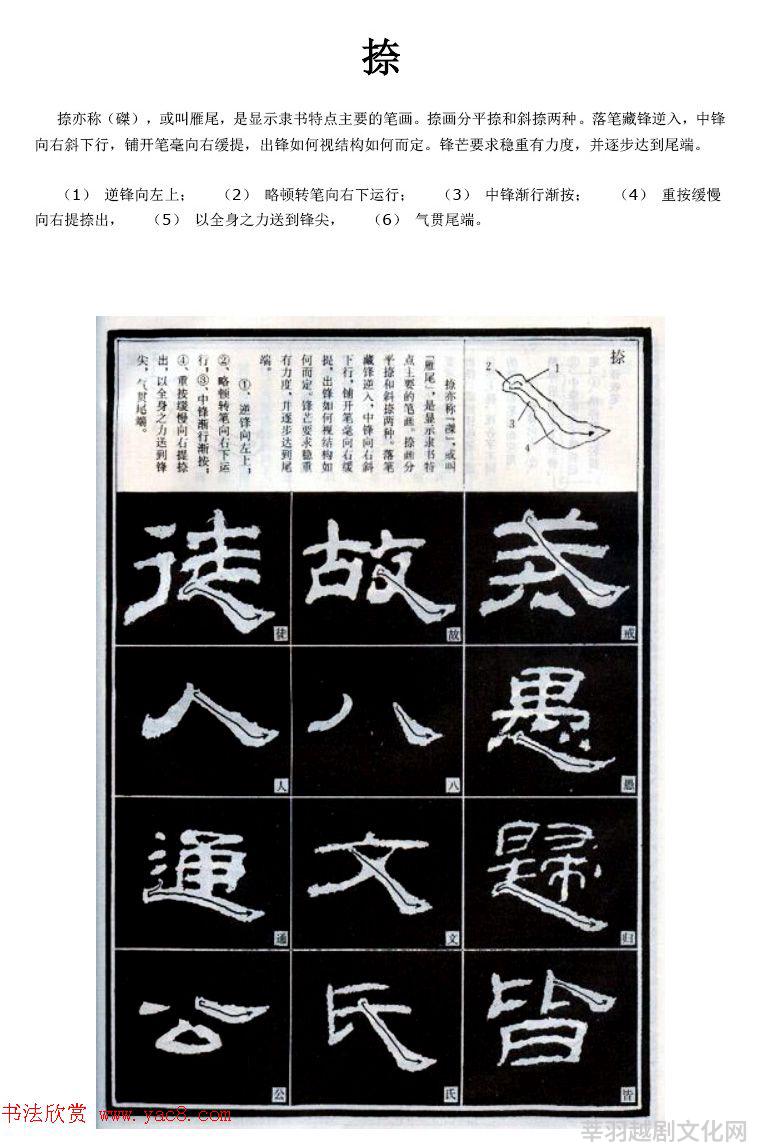 捺
捺亦称（磔），或叫雁尾，是显示隶书特点主要的笔画。捺画分平捺和斜捺两种。落笔藏锋逆入，中锋
向右斜下行，铺开笔毫向右缓提，出锋如何视结构如何而定。锋芒要求稳重有力度，并逐步达到尾端。
（1） 逆锋向左上；  （2） 略顿转笔向右下运行；  （3） 中锋渐行渐按；  （4） 重按缓慢
向右提捺出，  （5） 以全身之力送到锋尖，  （6） 气贯尾端。
捺
1
2
3
4
捺亦称“磔”，或叫
“雁尾”，是显示隶书特
点主要的笔画。捺画分
平捺和斜捺两种。落笔
藏锋逆入，中锋向右斜
下行，铺开笔毫向右缓
提，出锋如何视结构如
何而定。锋芒要求稳重
有力度，并逐步达到尾
端。
①、逆锋向左上；
②、略顿转笔向右下运
行；③、中锋渐行渐按；
④、重按缓慢向右提捺
出，以全身之力送到锋
尖，气贯尾端。
徒
故
戒
人
八
愚
通
文
归
公
氏
皆
书法欣赏 www.yac8.com
莘羽越剧文化网